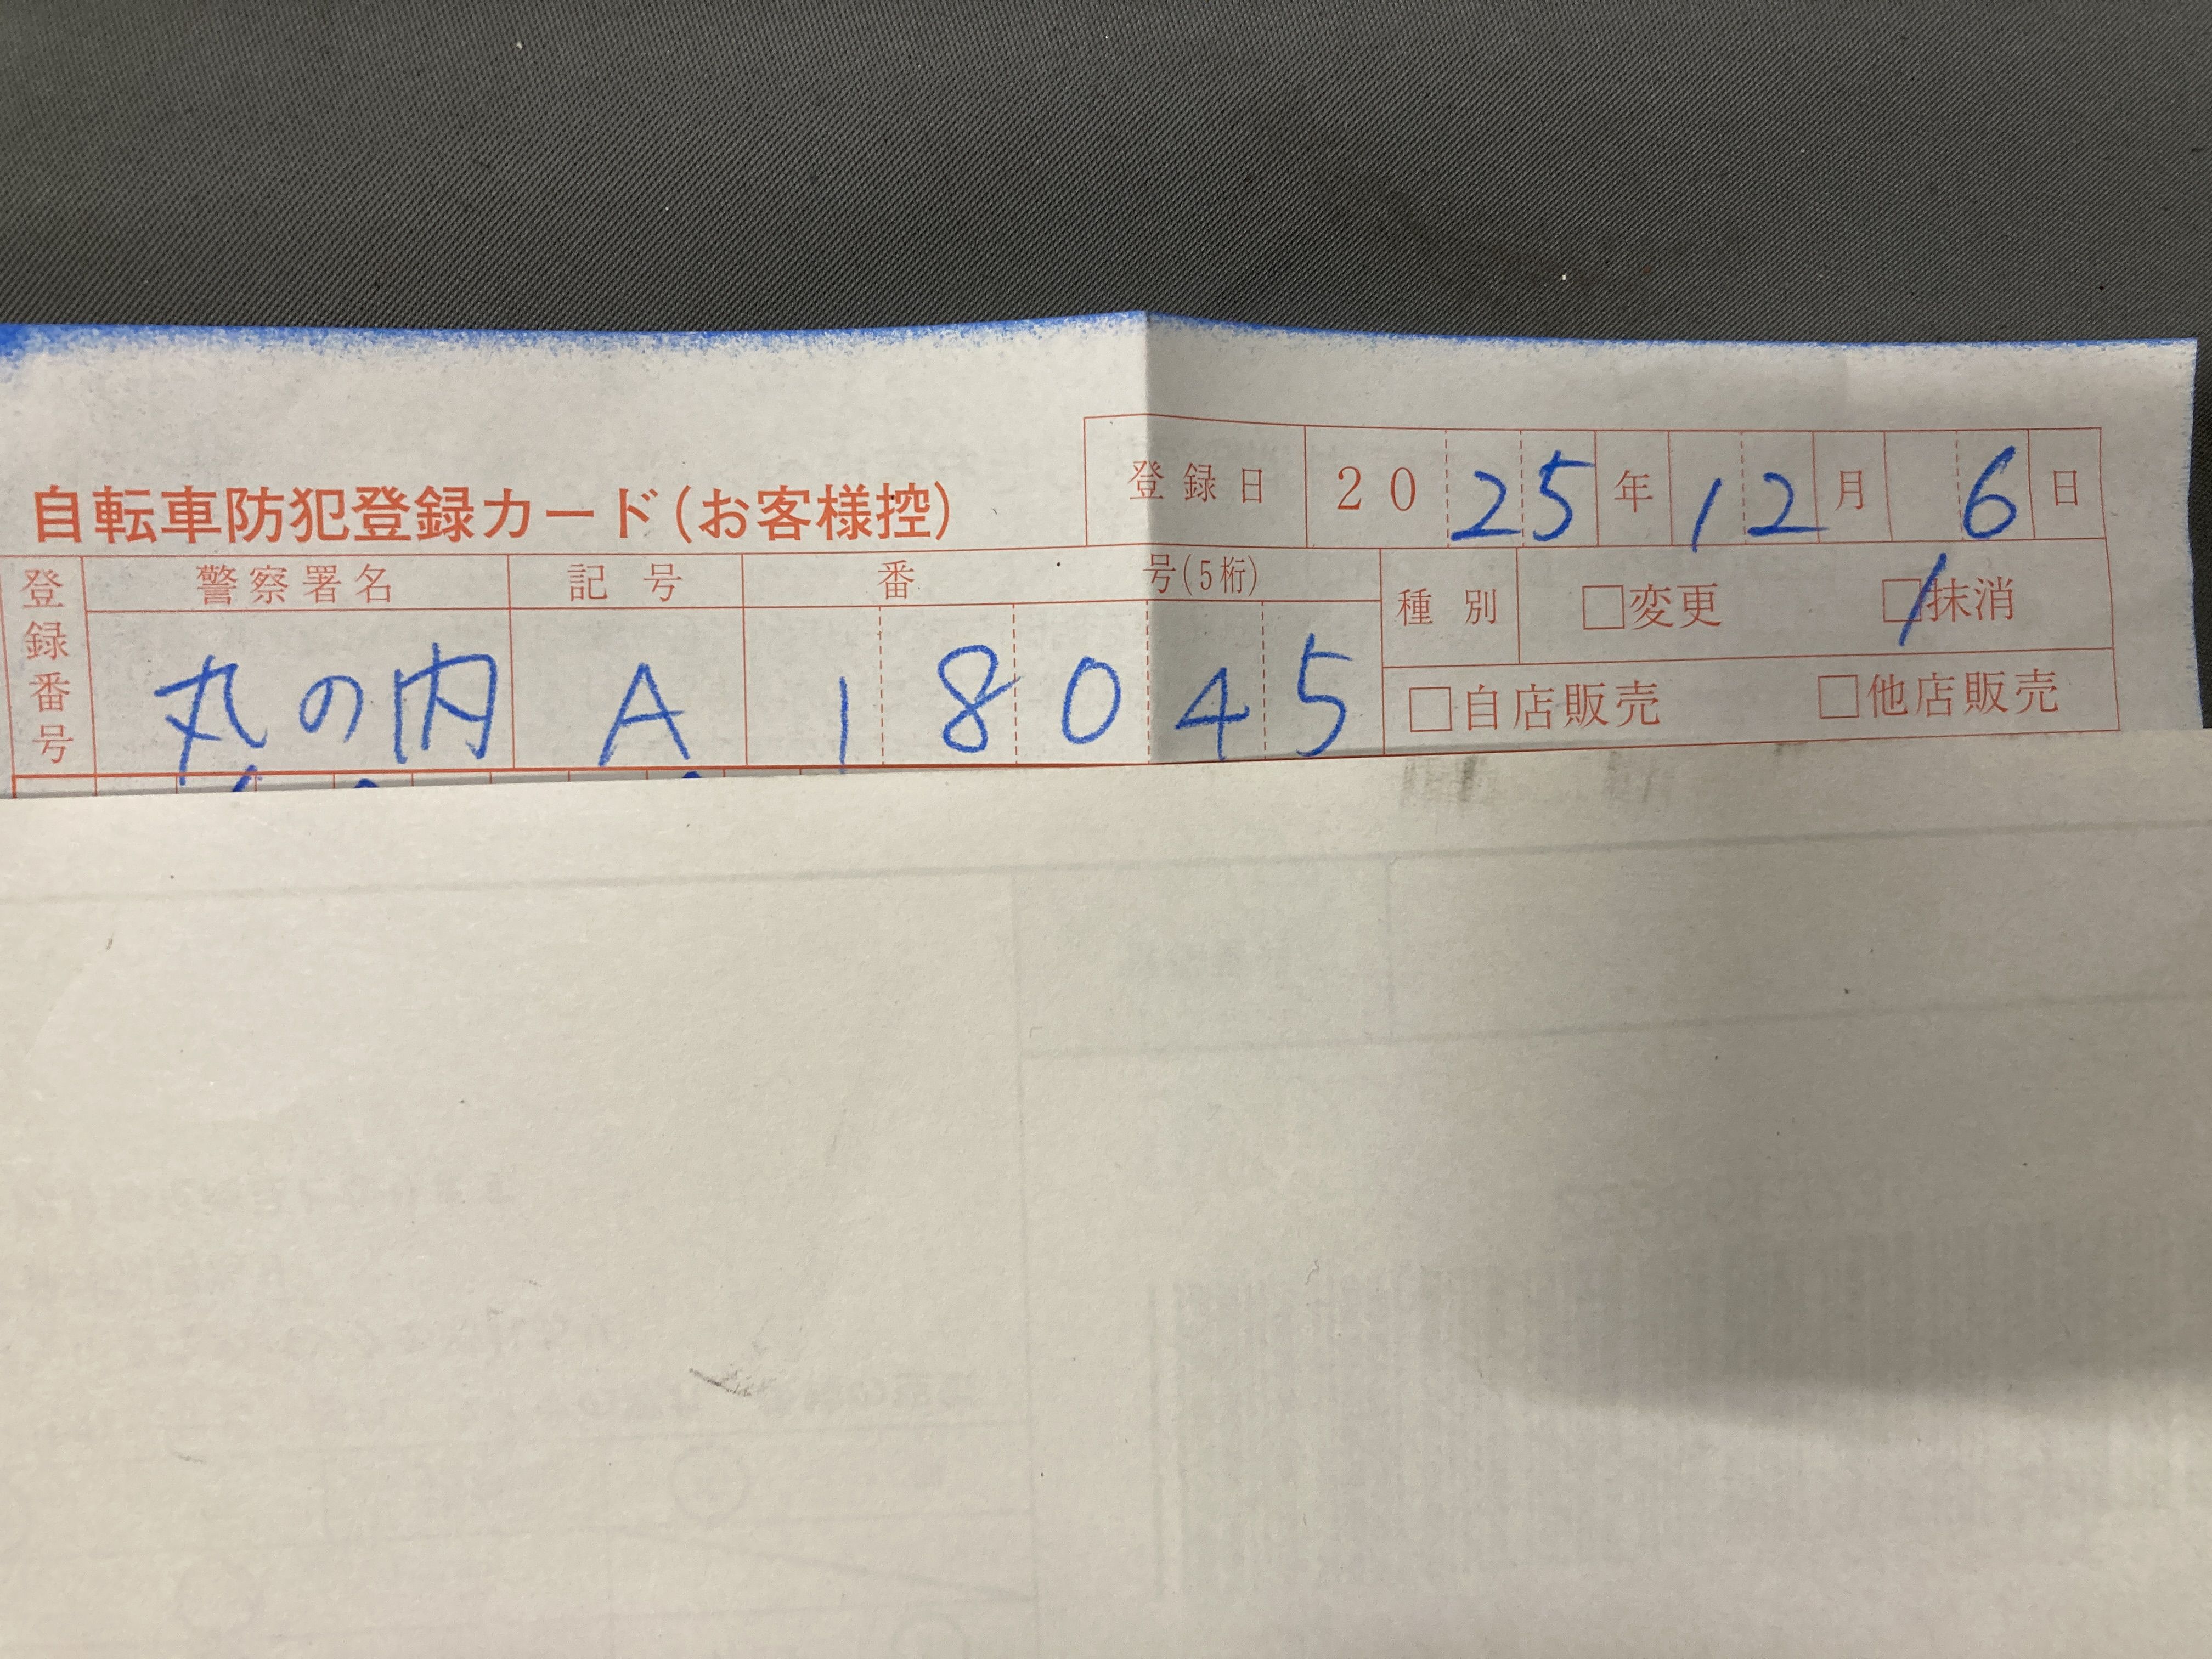 登録日 2025年12月6日
自転車防犯登録カード(お客様控)
登録番号 警察署名 記号 番号(5桁) 種別 □変更 □抹消
丸の内 A 18045 □自店販売 □他店販売